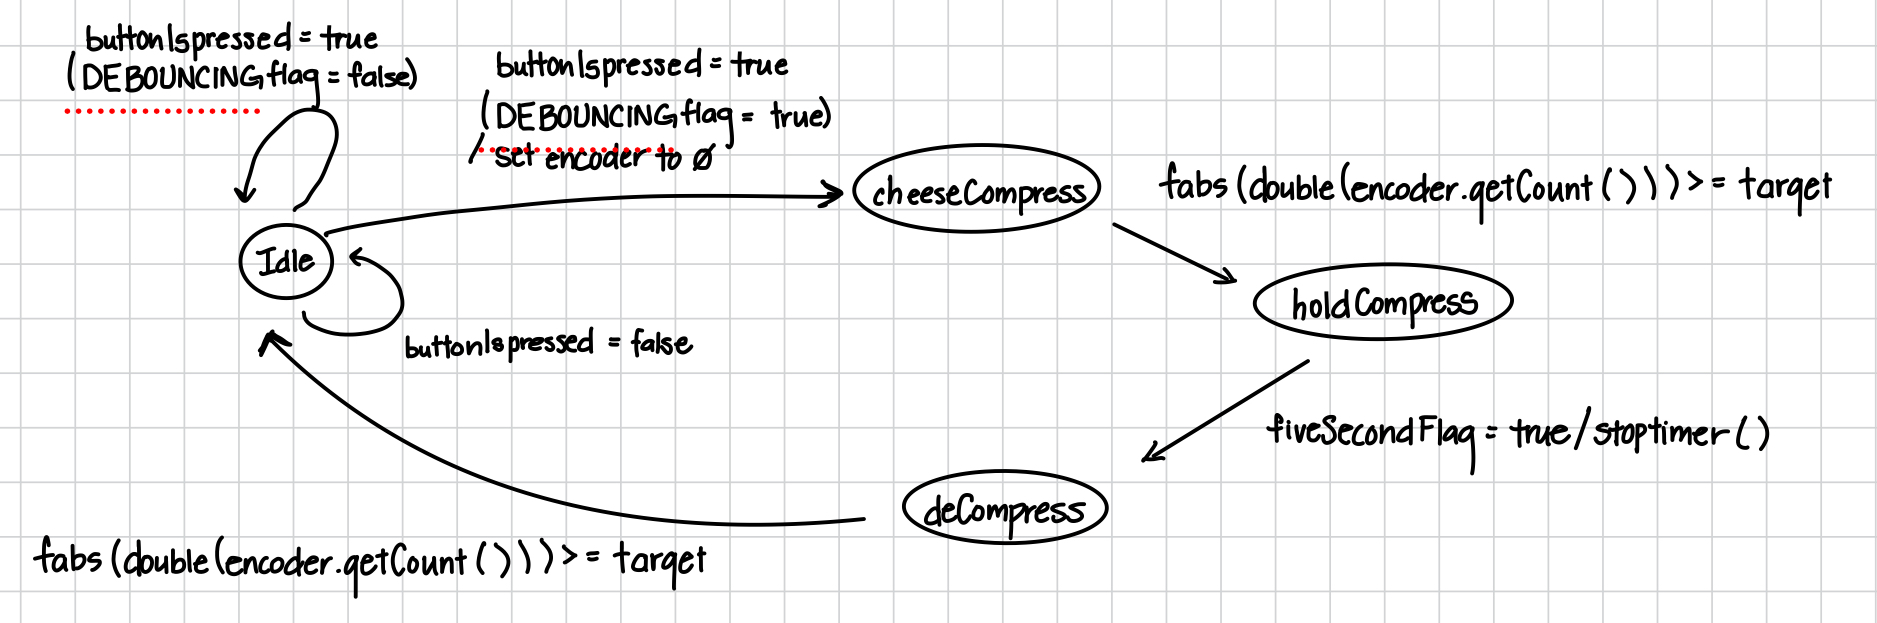 buttonIspressed = true
(DEBOUNCINGflag = false)
buttonIspressed = true
(DEBOUNCINGflag = true)
/ set encoder to Ø
cheeseCompress
fabs(double(encoder.getCount()))>= target
Idle
holdCompress
buttonIspressed = false
fiveSecondFlag = true/stoptimer()
deCompress
fabs(double(encoder.getCount()))>= target